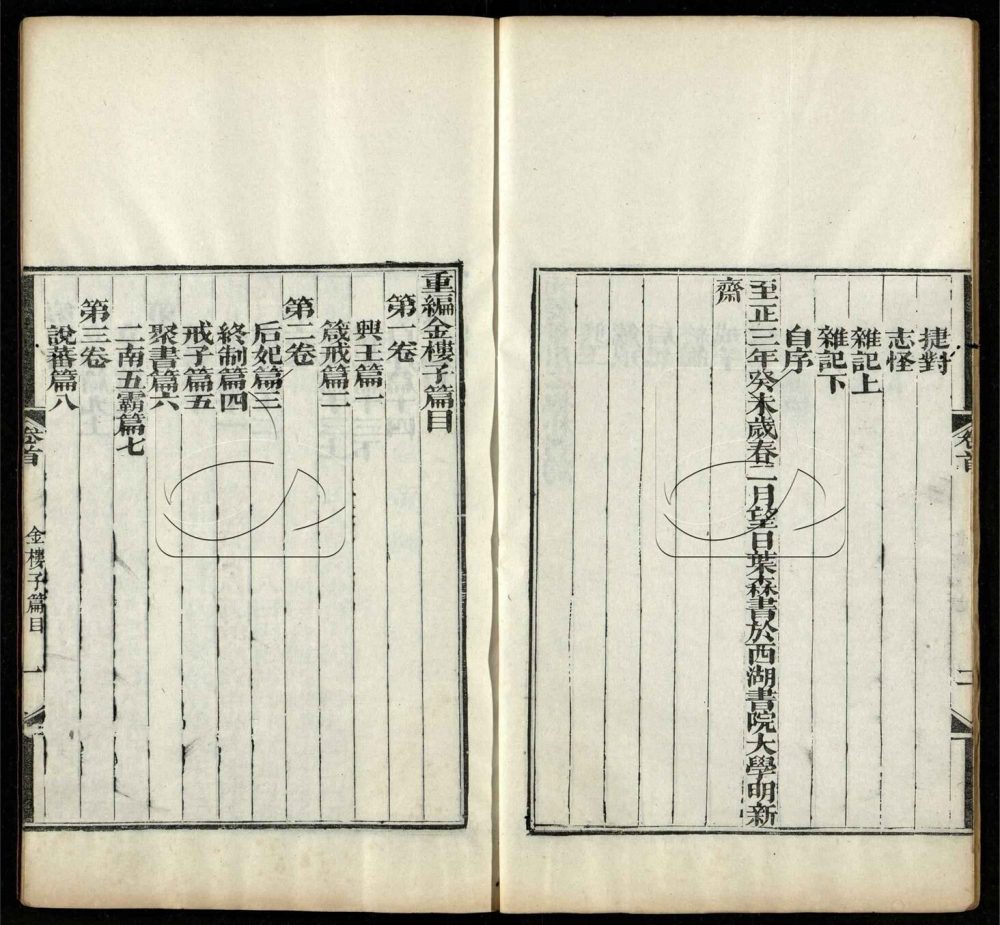 捷對
志怪
雜記上
雜記下
自序
至正三年癸未歲春二月望日葉森書於西湖書院大學明新
齋
卷首
二
重編金樓子篇目
第一卷
興王篇一
箴戒篇二
第二卷
后妃篇三
終制篇四
戒子篇五
聚書篇六
二南五霸篇七
第三卷
說蕃篇八
卷首
金樓子篇目
一